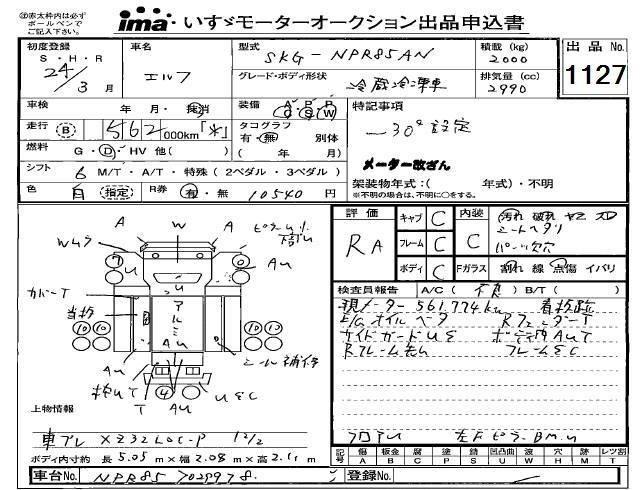 ㊟赤太枠内は必ず
ボールペンで
ご記入下さい。
ima・いすゞモーターオークション出品申込書
初度登録 S・H・R 24/3 月
車名 エルフ
型式 SKG-NPR85AN
グレード・ボディ形状 冷蔵冷凍車
積載(kg) 2000
排気量(cc) 2990
出品No. 1127
車検 年 月・抹消
装備 AC PS PW
特記事項
-30°設定
走行 B 562000km「*」
タコグラフ 有・無 別体
( 年 月)
燃料 G・D・HV 他( )
メーター改ざん
シフト 6 M/T・A/T・特殊(2ペダル・3ペダル)
架装物年式:( 年式)・不明
※不明の場合は、不明に○をする。
色 白 指定 R券 有・無 10540 円
評価 RA
キャブ C
フレーム C
ボディ C
内装 C
汚れ 破れ ヤニ スレ
シートヘタリ
パーツ欠穴
Fガラス 割れ 線 点傷 イバリ
検査員報告 A/C( 不良 ) B/T( )
現メーター 561,774km 看板跡
E/Gオイルベタ Rフェンダー T
サイドガードUE ボディ内AUT
フレームEC
フロアU
A W A
AU
カバーT
看板
アルミ
AU
シール補修
T AU
UEC
上物情報
車プレ XZ32LOC-P 12/2
ボディ内寸約 長 5.05 m×幅 2.08 m×高 2.11 m
記号 傷A 板金B 腐C 塗P 錆S 凹凸曲U 波W 穴H 滅M レツ割T
車台No. NPR85-7029978
登録No.